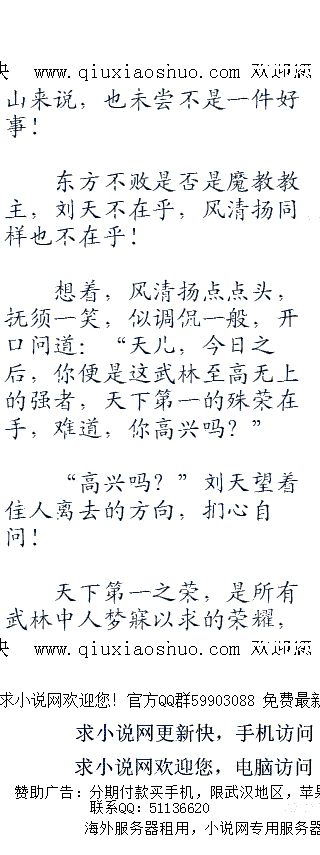 快　www.qiuxiaoshuo.com 欢迎您
山来说，也未尝不是一件好
事！
东方不败是否是魔教教
主，刘天不在乎，风清扬同
样也不在乎！
想着，风清扬点点头，
抚须一笑，似调侃一般，开
口问道：“天儿，今日之
后，你便是这武林至高无上
的强者，天下第一的殊荣在
手，难道，你高兴吗？”
“高兴吗？”刘天望着
住人离去的方向，扪心自
问！
天下第一之荣，是所有
武林中人梦寐以求的荣耀，
快　www.qiuxiaoshuo.com 欢迎您
求小说网欢迎您！官方QQ群59903088 免费最新
求小说网更新快，手机访问
求小说网欢迎您，电脑访问
赞助广告：分期付款买手机，限武汉地区，苹果
联系QQ：51136620
海外服务器租用，小说网专用服务器